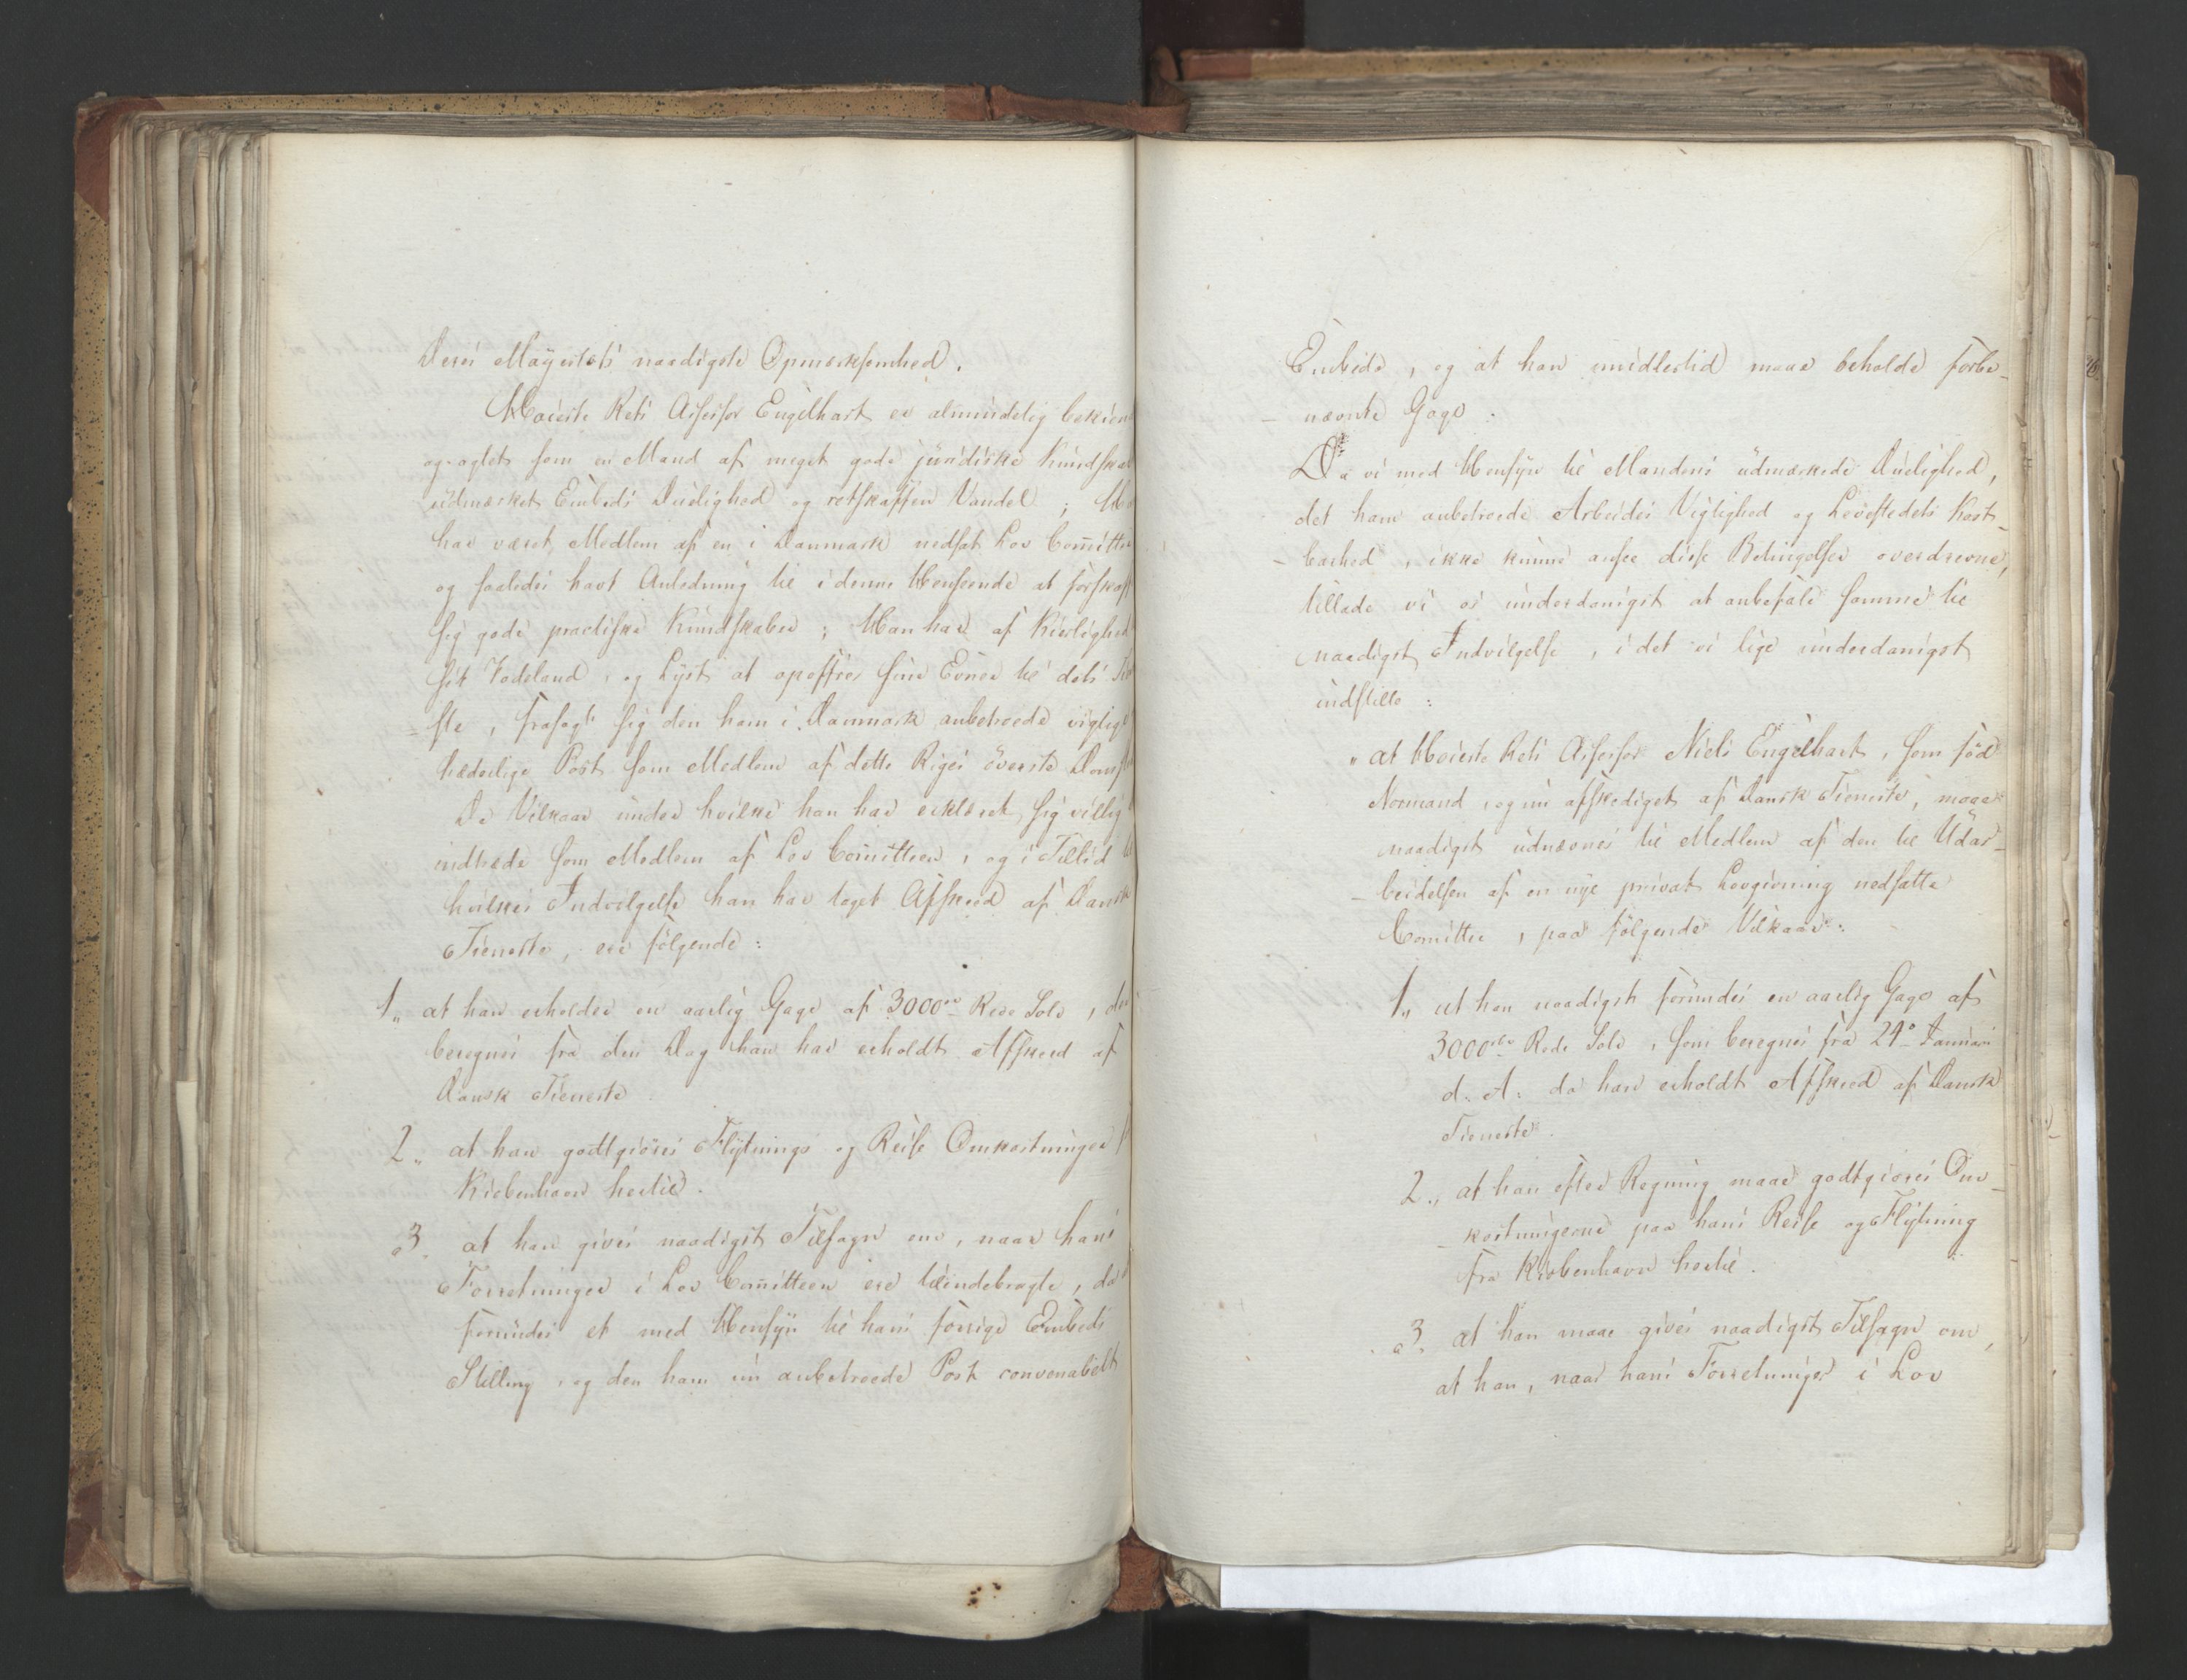 Deres Mayestæts naadigste Opmærksomhed.
Høieste Rets Assessor Engelhart er almindelig bekien
og agtet som en Mand af meget gode juridiske Kundskab
udmærket Embeds Duelighed og retskaffen Vandel;
har været Medlem af en i Danmark nedsat Lov Comittee
og saaledes havt Anledning til i denne Henseende at forskaff
sig gode practiske Kundskaber; Han har af Kierlighed
sit Fødeland, og Lyst at opoffre sine Evner til dets
ste, frasagt sig den ham i Danmark anbetroede vigtige
hæderlige Post som Medlem af dette Riges överste Domst
De Vilkaar under hvilke han har erklæret sig villig
indtræde som Medlem af Lov Comitteen, og i Tillid til
hvilkes Indvilgelse han har taget Afskeed af Dansk
Tieneste, ere følgende:
1„ at han erholder en aarlig Gage af 3000 Rede Sølv, der
beregnes fra den Dag han har erholdt Afskeed af
Dansk Tieneste
2„ at han godtgiøres Flytnings og Reise Omkostninger f
Kiøbenhavn hertil.
3. at han gives naadigst Tilsagn om, naar hans
Forretninger i Lov Comitteen ere tilendebragte, da
forundes et med Hensyn til hans forrige Embeds
Stilling, og den ham nu anbetroede Post convenabelt
Embede, og at han imidlertid maae beholde forbe-
- nævnte Gage.
Da vi med Hensyn til Mandens udmærkede Duelighed,
det ham anbetroede Arbeides Vigtighed og Levestedets Kost-
- barhed, ikke kunne ansee disse Betingelser overdrevne,
tillade vi os underdanigst at anbefale samme til
naadigst Indvilgelse, i det vi lige underdanigst
indstille:
„ at Høieste Rets Assessor Niels Engelhart, som föd
Normand, og nu afskediget af Dansk Tieneste, maae
naadigst udnævnes til Medlem af den til Udar-
- beidelsen af en nye privat Lovgivning nedsatte
Comittee, paa følgende Vilkaar:
1„ at han naadigst forundes en aarlig Gage af
3000 Rede Sølv, som beregnes fra 24de Januari
d: A: da han erholdt Afskeed af Dansk
Tieneste.
2„ at han efter Regning maae godtgiøres Om-
- kostningerne paa hans Reise og Flytning
fra Kiøbenhavn hertil.
3. at han maae gives naadigst Tilsagn om,
at han, naar hans Forretninger i Lov